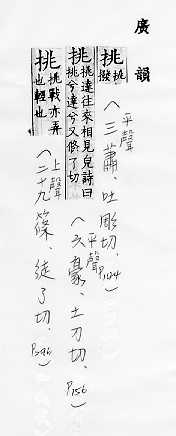 廣韻
挑 挑撥 (平聲 三蕭、吐彫切、P.144)
挑 挑達往來相見皃詩曰挑兮達兮又條了切 (平聲 六豪、土刀切、P.156)
挑 挑戰亦弄也輕也 (上聲 二十九篠、徒了切、P.296)